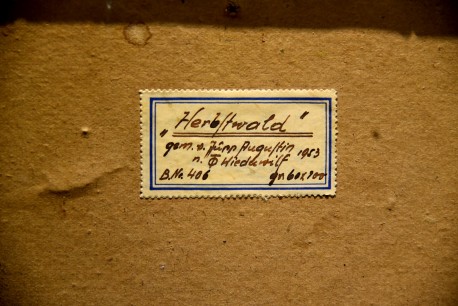 „Herbstwald"
gem. v. Jupp Augustin 1953
n. Wiedwilf
B.Nr 406 gr. 60x100